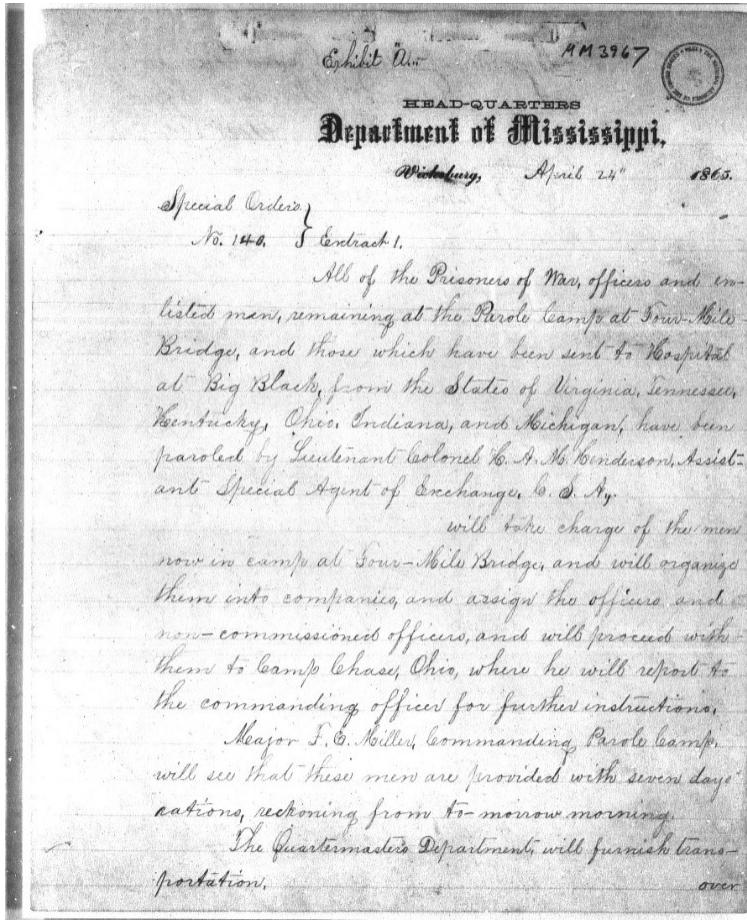 Exhibit "A."
MM3967
HEAD-QUARTERS
Department of Mississippi,
Vicksburg, April 24" 1865.
Special Orders
No. 140. } Extract 1.
All of the Prisoners of War, officers and en-
listed men, remaining at the Parole Camp at Four-Mile
Bridge, and those which have been sent to Hospital
at Big Black, from the States of Virginia, Tennessee,
Kentucky, Ohio, Indiana, and Michigan, have been
paroled by Lieutenant Colonel H. A. M. Henderson, Assist-
ant Special Agent of Exchange, C. S. A.,
will take charge of the men
now in camp at Four-Mile Bridge, and will organize
them into companies, and assign the officers and
non-commissioned officers, and will proceed with
them to Camp Chase, Ohio, where he will report to
the commanding officer for further instructions.
Major F. E. Miller, Commanding Parole Camp,
will see that these men are provided with seven days'
rations, reckoning from to-morrow morning.
The Quartermasters Department will furnish trans-
portation.
over